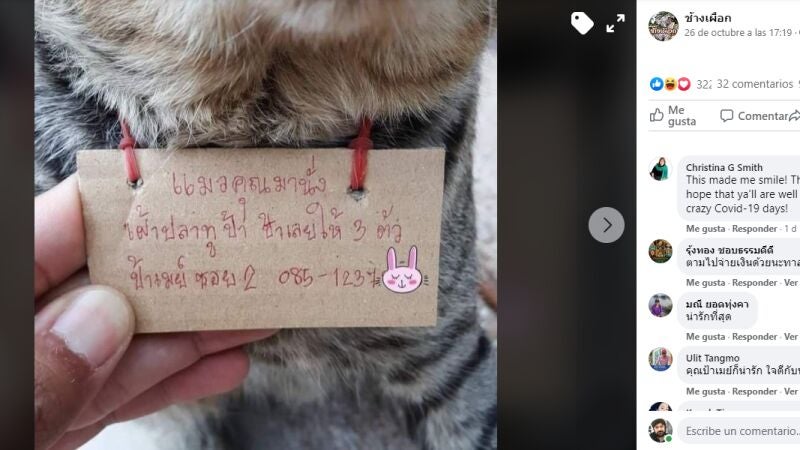 แมวคุณมานั่ง
เฝ้าปลาทูป้า ป้าเลยให้ 3 ตัว
ป้าเมย์ ซอย 2 085-1237
ช้างเผือก
26 de octubre a las 17:19
322 32 comentarios
Me gusta
Comentar
Christina G Smith
This made me smile! Th
hope that ya'll are well
crazy Covid-19 days!
Me gusta · Responder · 1 d
รุ้งทอง ชอบธรรมดีดี
ตามไปจ่ายเงินด้วยนะทาส
Me gusta · Responder · Ver
มณี ยอดทุ่งคา
น่ารักที่สุด
Me gusta · Responder · Ver
Ulit Tangmo
คุณป้าเมย์ก็น่ารัก ใจดีกับ
Me gusta · Responder · Ver
Escribe un comentario...